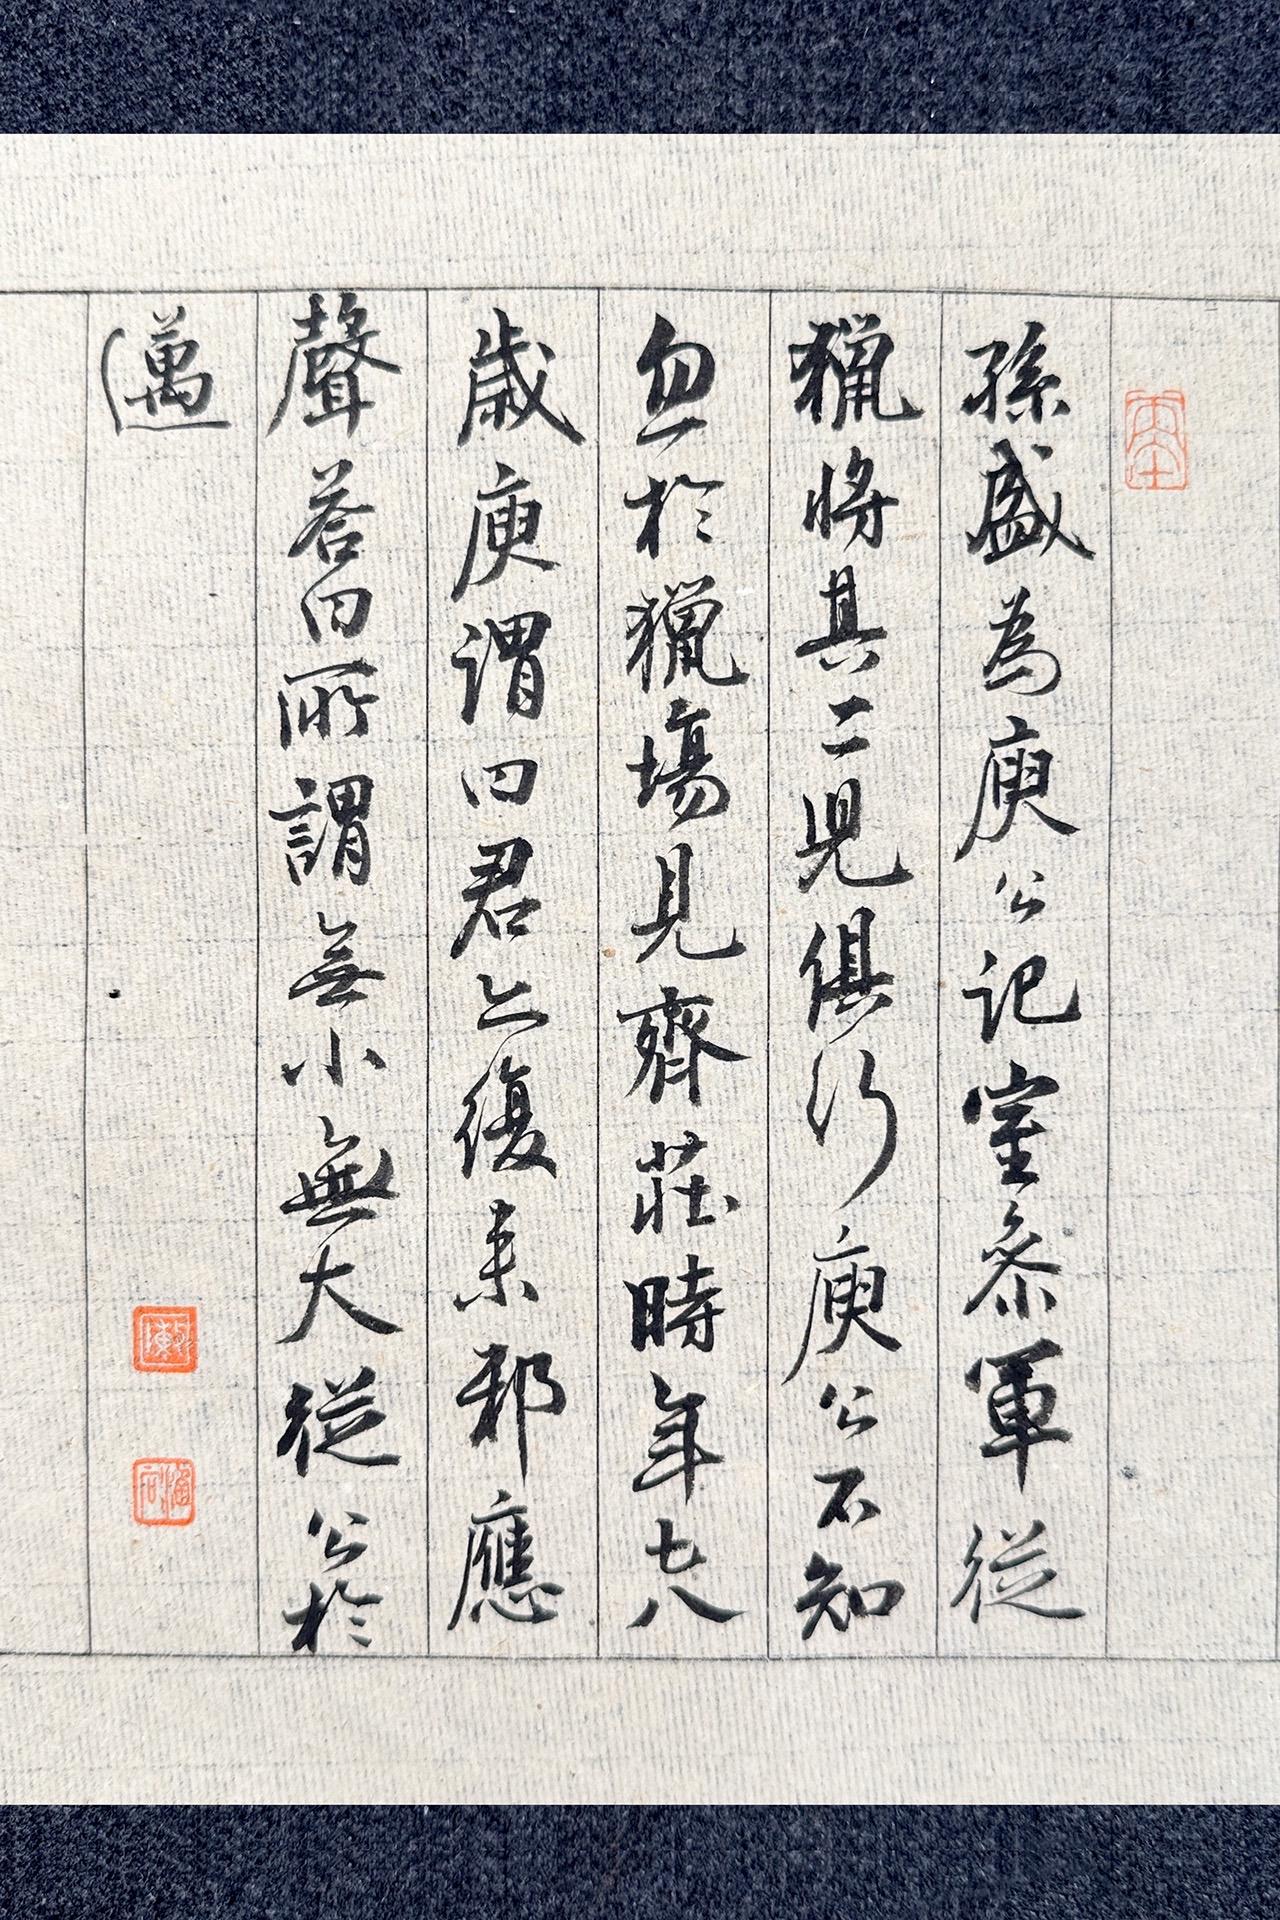 孫盛為庾公記室參軍從
獵將其二児俱行庾公不知
忽於獵場見齊莊時年七八
歲庾謂曰君亦復来邪應
聲荅曰所謂無小無大從公於
邁